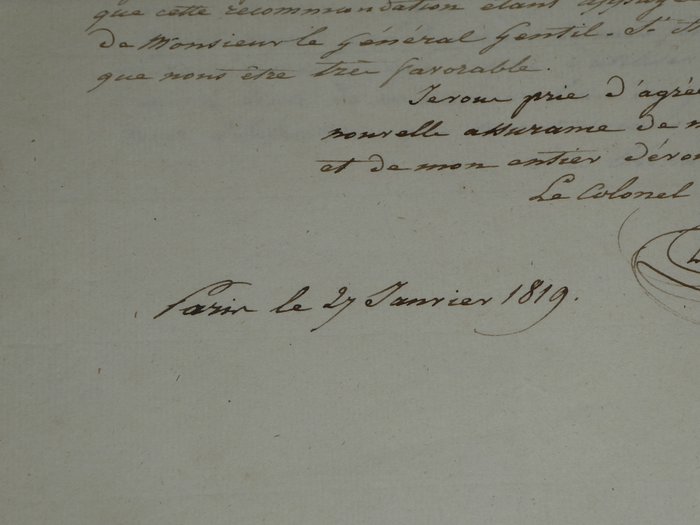 que cette recommandation étant appuyé
de Monsieur le Général Gentil. St
que nous être très favorable.
Je vous prie d'agré
nouvelle assurance de
et de mon entier dévou
Le Colonel
Paris le 27 Janvier 1819.